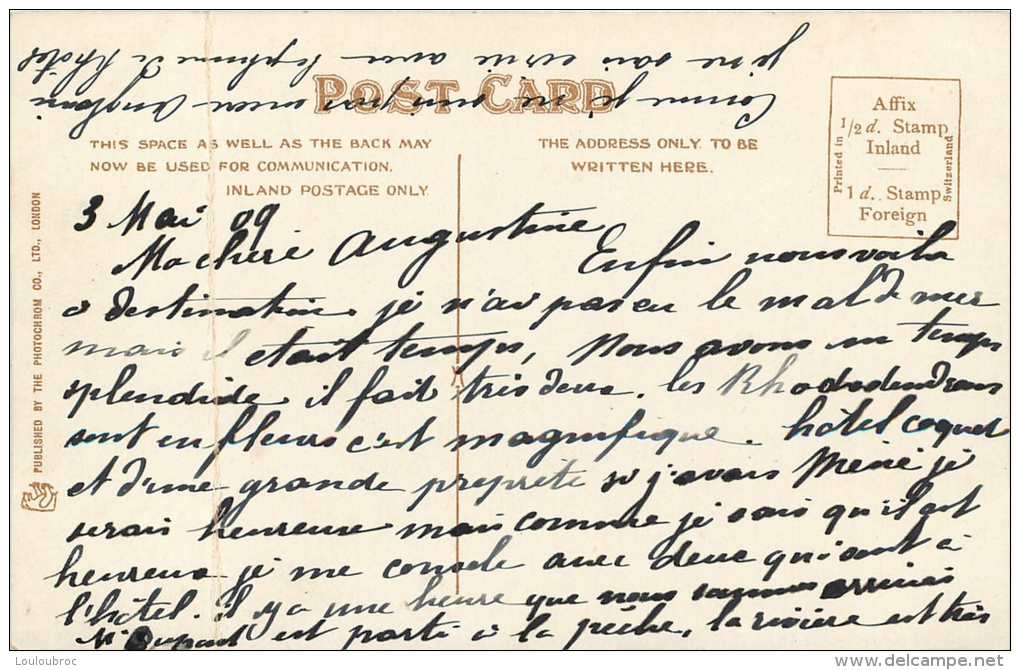 je ne sais écrire avec la plume de l'hôtel
Comme
POST CARD
THIS SPACE AS WELL AS THE BACK MAY
NOW BE USED FOR COMMUNICATION.
INLAND POSTAGE ONLY.
THE ADDRESS ONLY TO BE
WRITTEN HERE.
Affix
1/2 d. Stamp
Inland
1 d. Stamp
Foreign
Printed in
Switzerland
PUBLISHED BY THE PHOTOCHROM CO., LTD., LONDON
3 Mai 09
Ma chère Augustine
Enfin nous voila
a destination, je n'ai pas eu le mal de mer
mais il etait temps, Nous avons un temps
splendide il fait très doux. les Rhododendrons
sont en fleurs c'est magnifique. hôtel coquet
et d'une grande propreté si j'avais Mémé je
serais heureuse mais comme je sais qu'il est
heureux je me console avec deux qui sont à
l'hôtel. il y a une heure que nous sommes arrivés
Mr Dupont est parti à la pêche, la rivière est très
Louloubroc
www.delcampe.net